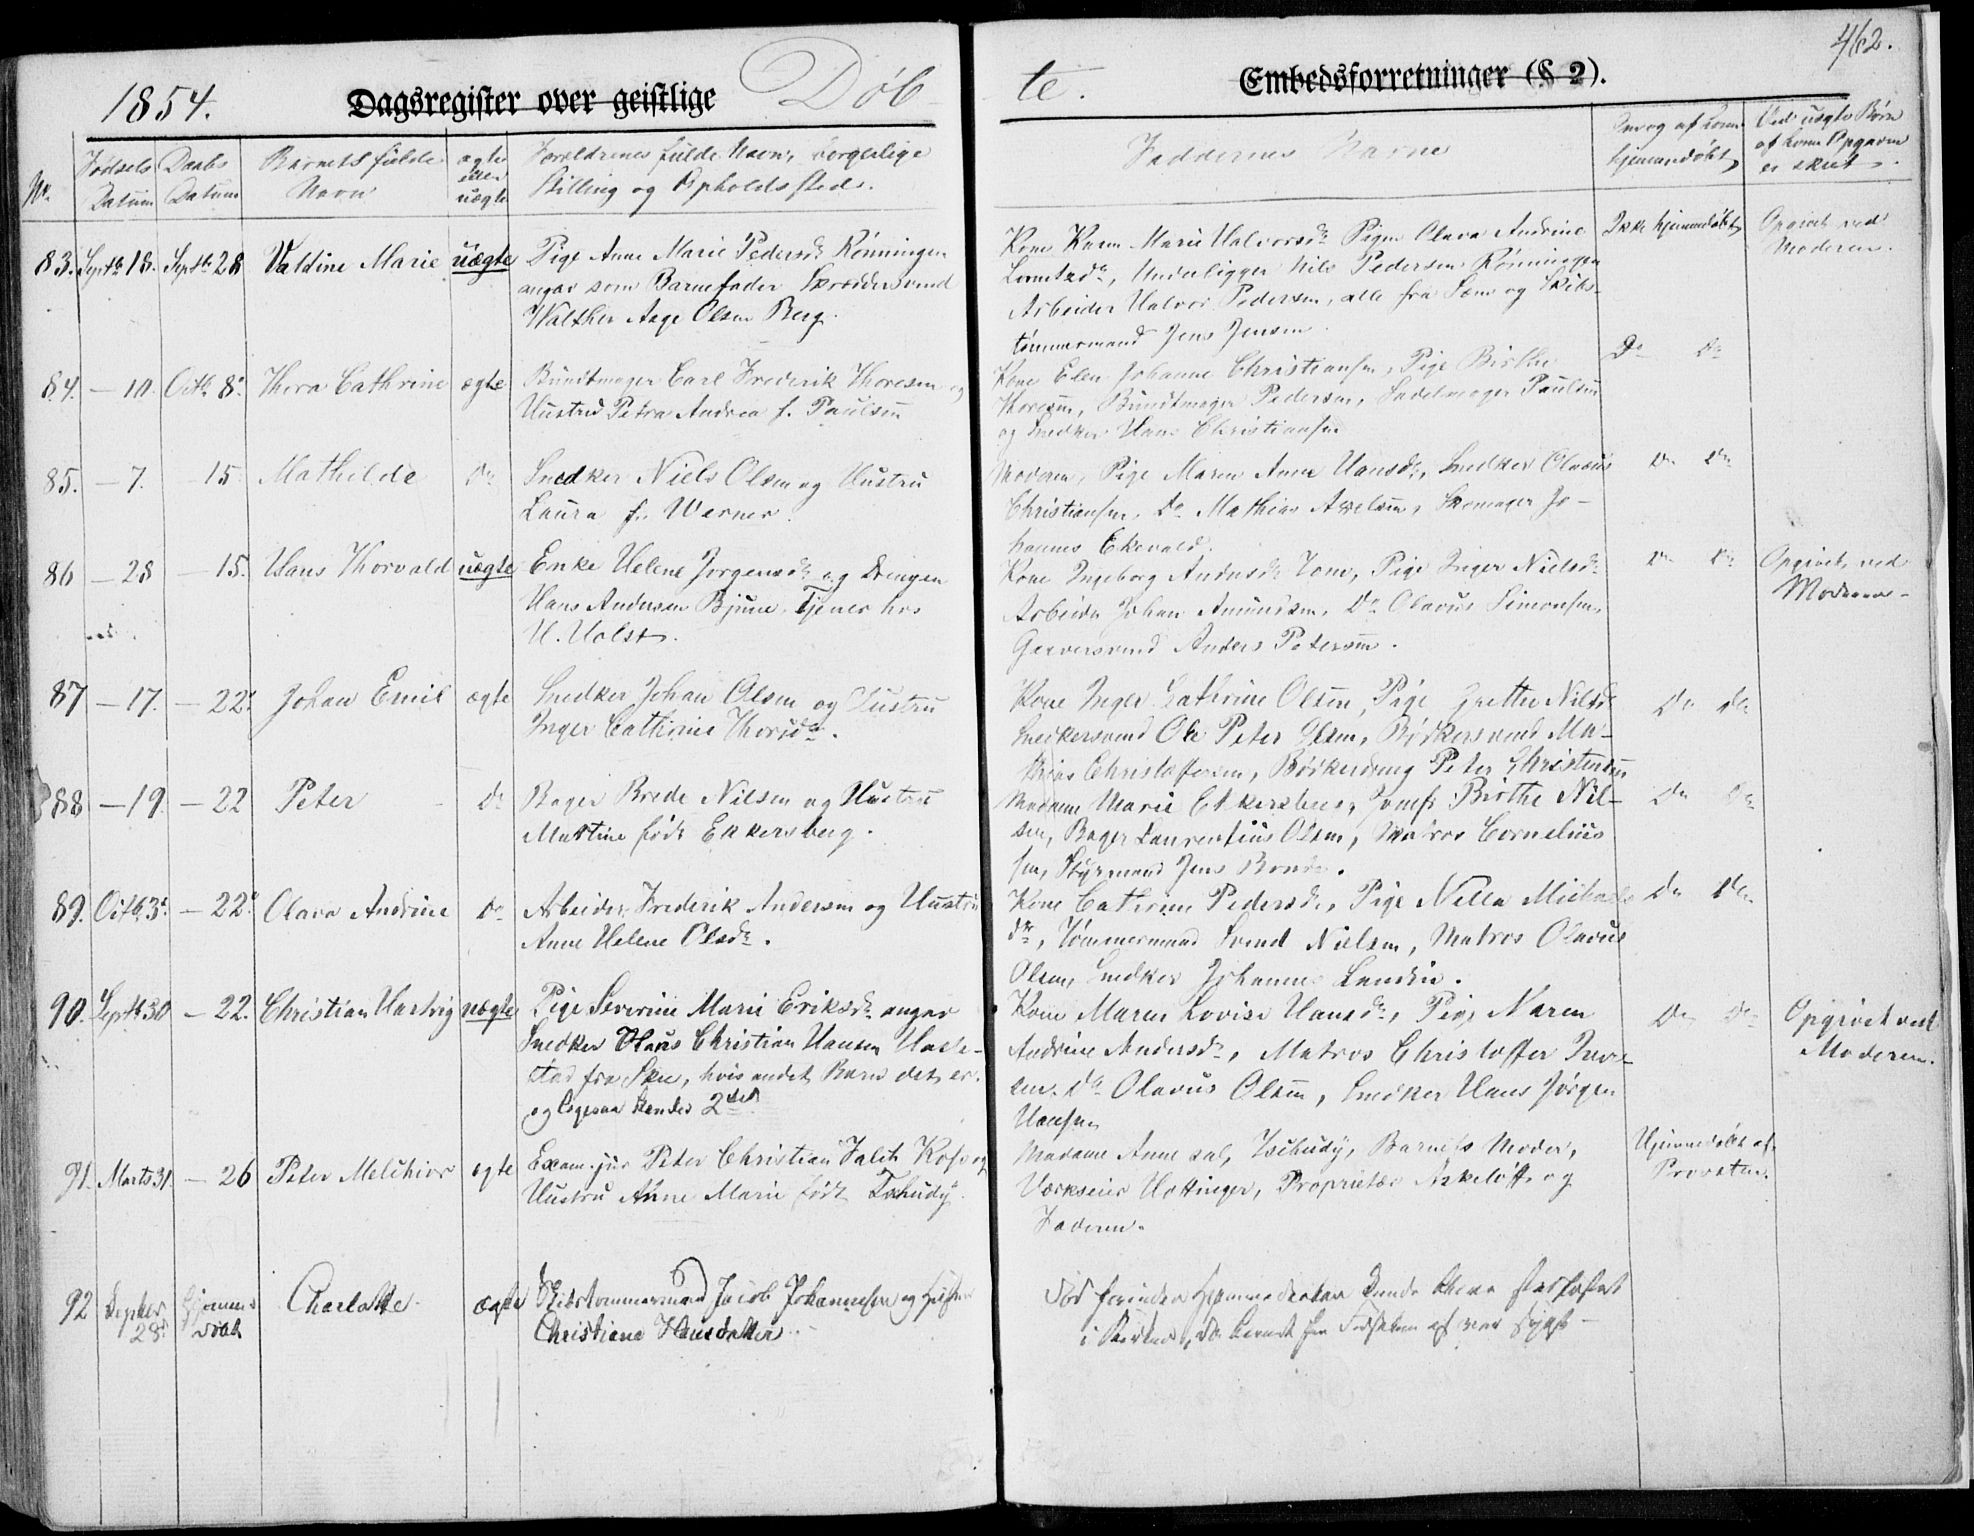 1854.
Dagsregister over geistlige
Døb
te.
Embedsforretninger (§ 2).
462.
No.
Fødsels Datum
Daabs Datum
Barnets fulde Navn
ægte eller uægte
Forældrenes fulde Navn, borgerlige
Stilling og Opholdssted.
Faddernes Navne
hjemmedøbt
Ved uægte Børn
af hvem Opgaven
er skeet.
83. Septb. 18. Septb. 28 Valdine Marie uægte
Pige Anne Marie Pedersdr. Rønningen
angav som Barnefader Skræddersvend
Walther Aage Olsen Berg.
Kone Karen Marie Halvorsdr. Pigen Olava Andrine
Underligger Nils Pedersen Rønningen
Arbeider Halvor Pedersen, alle fra Sem og Skibs-
tømmermand Jens Jensen.
Ikke hjemmedøbt
Opgivet ved
Moderen.
84. — 10. Octb. 8. Thora Cathrine ægte
Bundtmager Carl Frederik Thoresen og
Hustru Petra Andrea f. Paulsen
Kone Elen Johanne Christiansen, Pige Birthe
Thoresen, Bundtmager Pedersen, Sadelmager Paulsen
og Snedker Hans Christiansen
Do Do
85. — 7. 15. Mathilde Do
Snedker Niels Olsen og Hustru
Laura f. Werner.
Moderen, Pige Maren Anne Hansdr., Snedker Olaus
Christiansen, Do Mathias Axelsen, Skomager Jo-
hannes Ekevald.
Do Do
86 — 28 — 15. Hans Thorvald uægte
Enke Helene Jørgensdr. og Drengen
Hans Andersen Bjune, Tjener hos
H. Holst.
Kone Ingeborg Andersdr. Tom, Pige Inger Nielsdr.
Arbeider Johan Amundsen, Do Olavus Simonsen,
Garversvend Anders Petersen.
Do Do
Opgivet ved
Moderen.
87 — 17. — 22. Johan Emil ægte
Snedker Johan Olsen og Hustru
Inger Cathrine Thorsdr.
Kone Inger Cathrine Olsen, Pige Grethe Nilsdr.
Snedkersvend Ole Peter Olsen, Bødkersvend Ma-
thias Christoffersen, Bødkerdreng Peter Christensen
Do Do
88 — 19. — 22 Peter Do
Bager Brede Nilsen og Hustru
Martine født Ekkersberg.
Madame Marie Ekkersberg, Jomfr. Birthe Nil-
sen, Bager Laurentius Olsen, Matros Cornelius-
sen, Styrmand Jens Bonde.
Do Do
89. Octb. 3. — 22. Olava Andrine Do
Arbeider Frederik Andersen og Hustru
Anne Helene Olsdr.
Kone Cathrine Pedersdr., Pige Nella Michaels-
dr., Tømmermand Svend Nielsen, Matros Olavus
Olsen, Snedker Johannes Lundin.
Do Do
90. Septb. 30 — 22. Christian Hartvig uægte
Pige Severine Marie Eriksdr. angav
Snedker Claus Christian Hansen Hasle-
stad fra Skee, hvis andet Barn det er.
og ligesaa hendes 2det
Kone Maren Lovise Hansdr., Pige Maren
Andrine Andersdr., Matros Christoffer Iver-
sen. Do Olavus Olsen, Snedker Hans Jørgen
Hansen
Do Do
Opgivet ved
Moderen.
91. Marts 31. — 26 Peter Melchior ægte
Exam. jur. Peter Christian Falck Kofod og
Hustru Anne Marie født Tschudy.
Madame Anne sal. Tschudy, Barnets Moder,
Værkseier Hottinger, Proprietær Askeløff og
Faderen.
Hjemmedøbt af
Provsten.
92 Septbr. 28. hjemme døbt Charlotte ægte
Skibstømmermand Jacob Johannesen og Hustru
Christiane Hansdatter.
Død forinden Hjemmedaaben kunde blive stadfæstet
i Kirken, da Barnet fra Fødselen af var sygt —